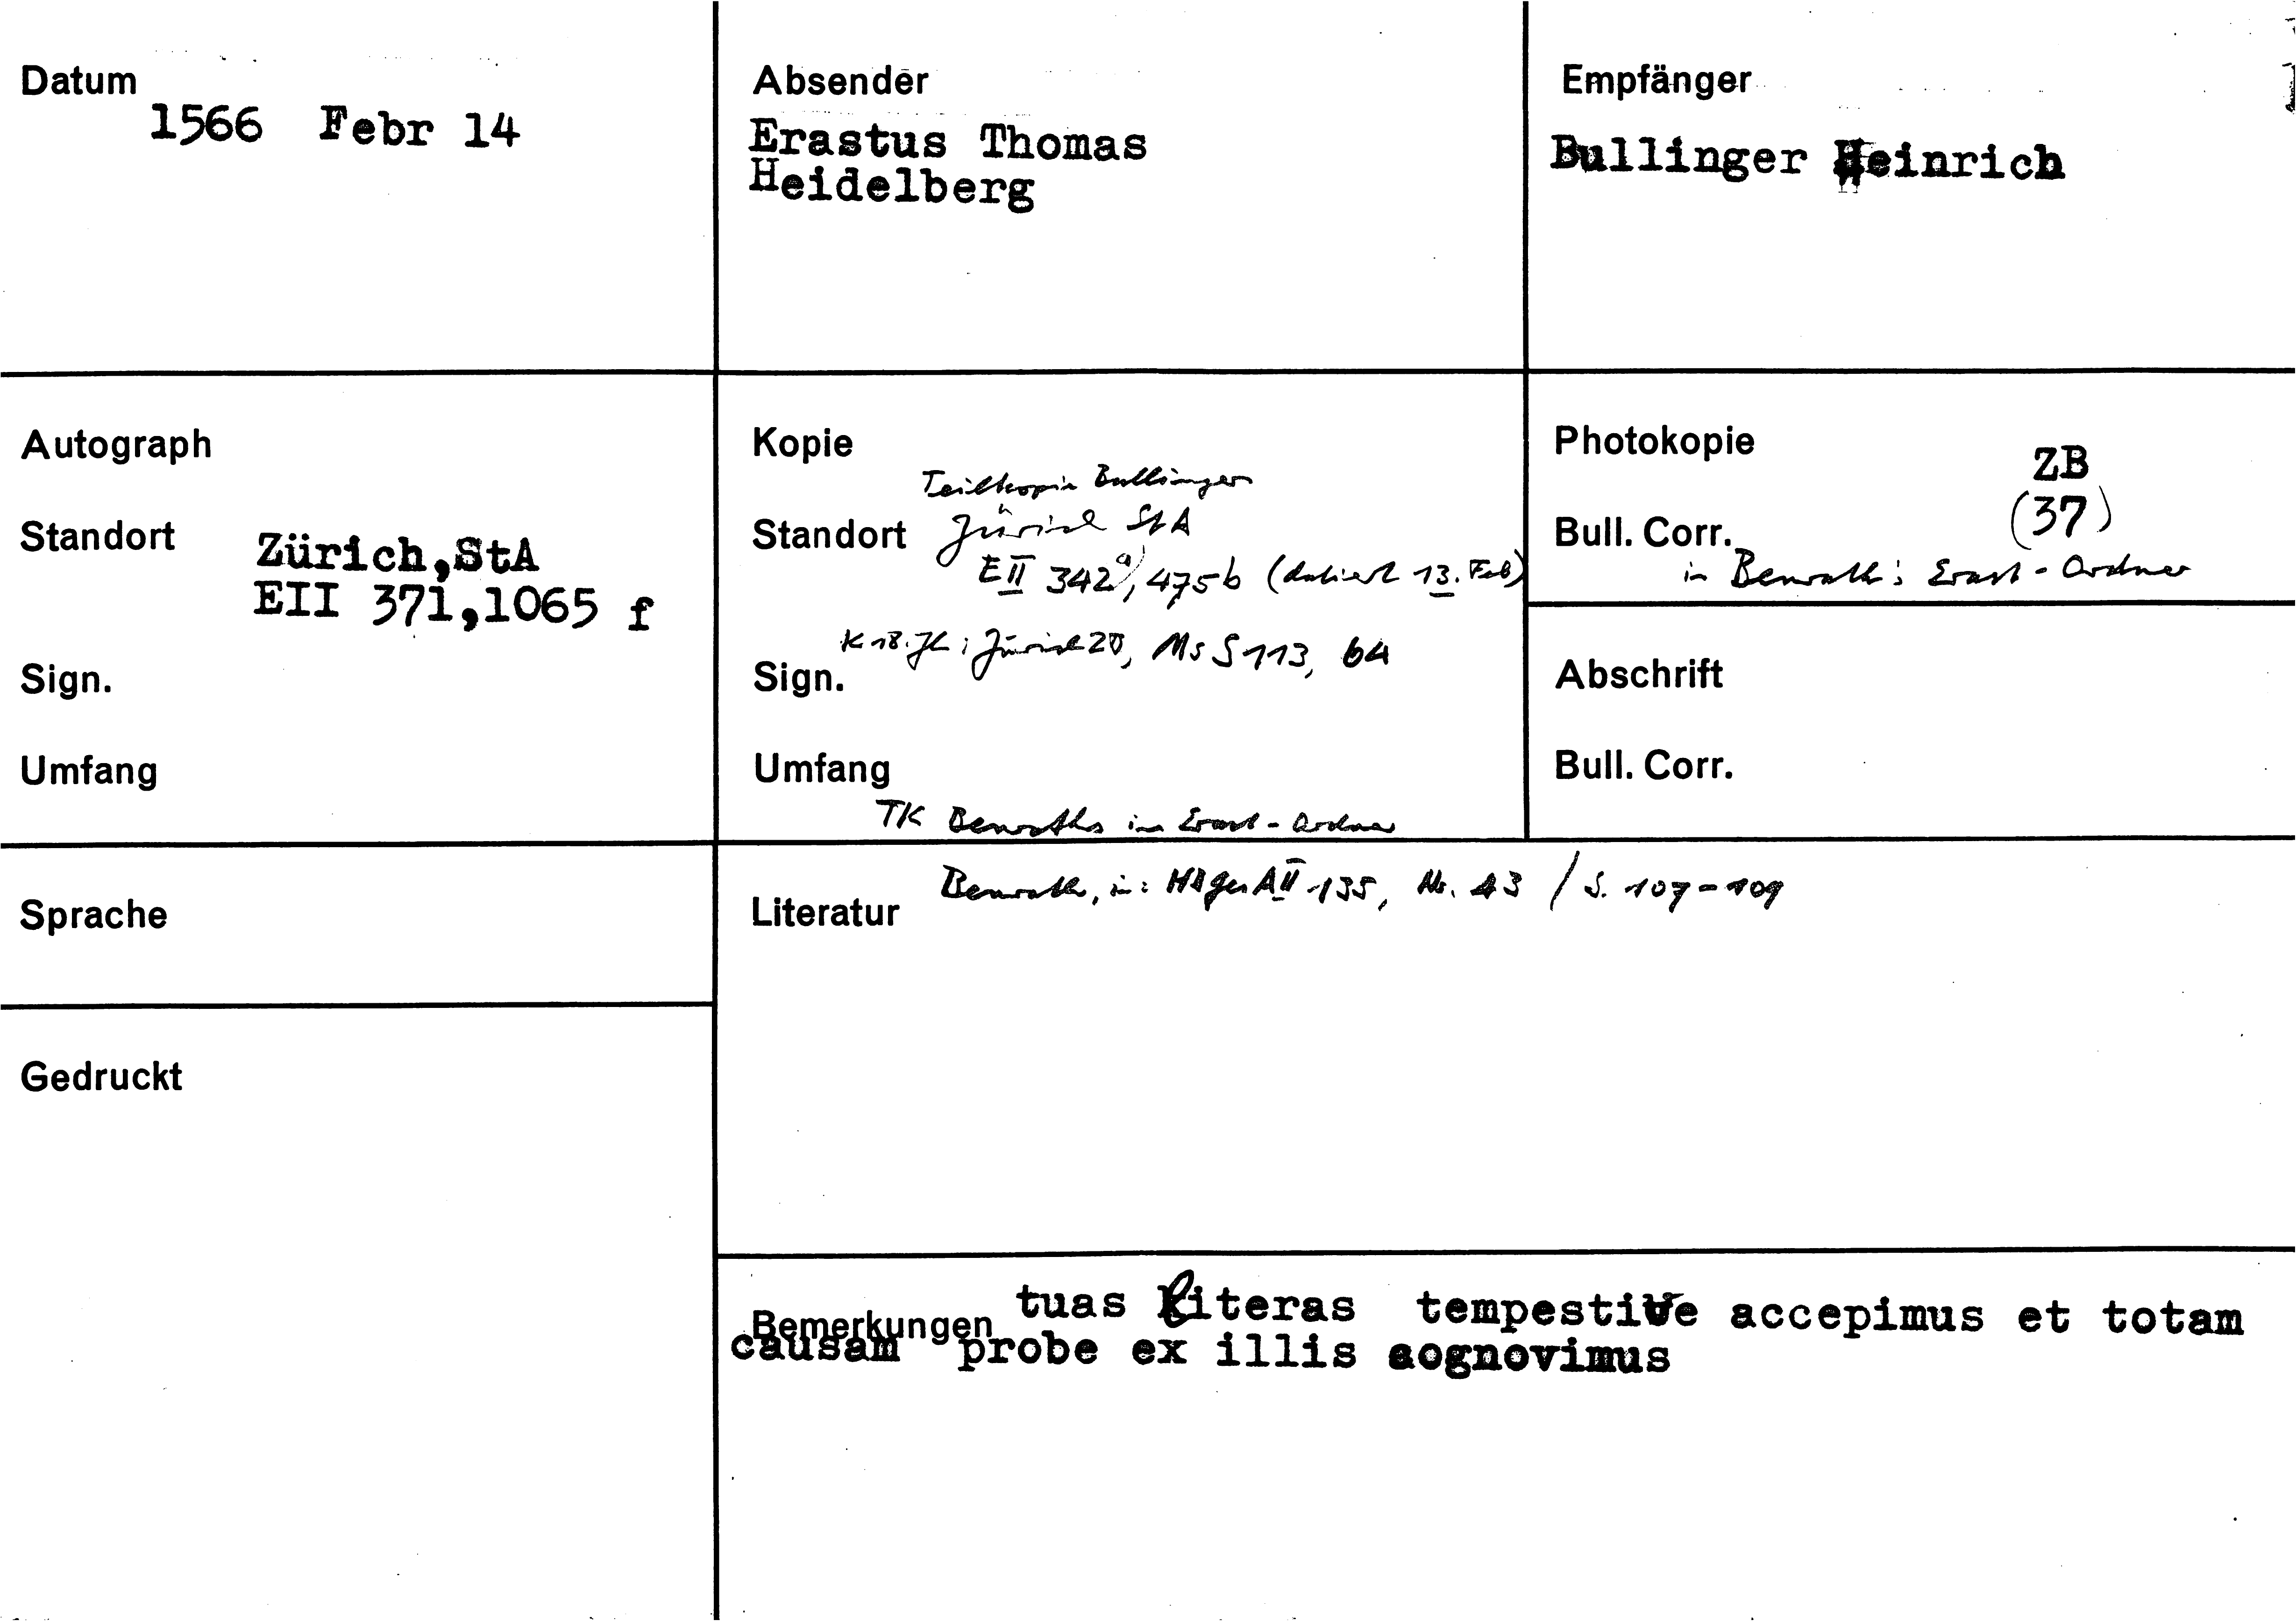 Datum
1566 Febr 14
Absender
Erastus Thomas
Heidelberg
Empfänger
Bullinger Heinrich
Autograph
Standort
Zürich,StA
EII 371,1065 f
Sign.
Umfang
Kopie
Teilkopie Bullinger
Standort Zürich StA
EII 342a, 475b (datiert 13. Feb)
K 18. Jh; Zürich ZB, Ms S 113, 64
Sign.
Umfang
TK Benraths im Erast-Ordner
Photokopie
ZB
Bull. Corr.
(37)
in Benraths Erast-Ordner
Abschrift
Bull. Corr.
Sprache
Literatur
Benrath, in: HBges A II 135, Nr. 43 / S. 107-109
Gedruckt
Bemerkungen tuas literas tempestive accepimus et totam
causam probe ex illis cognovimus